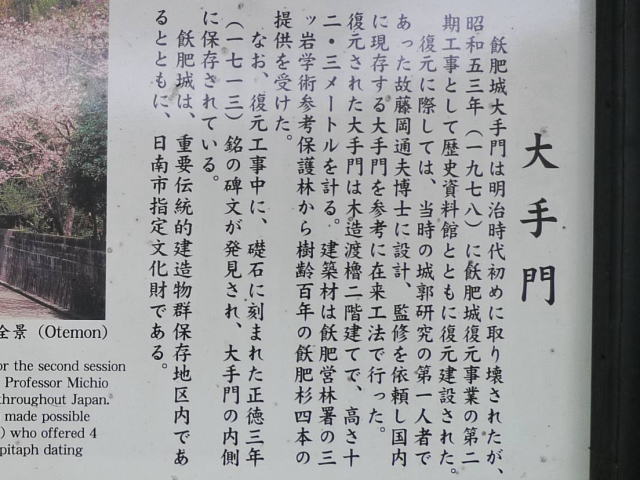 大手門
飫肥城大手門は明治時代初めに取り壊されたが、
昭和五三年（一九七八）に飫肥城復元事業の第二
期工事として歴史資料館とともに復元建設された。
復元に際しては、当時の城郭研究の第一人者で
あった故藤岡通夫博士に設計、監修を依頼し国内
に現存する大手門を参考に在来工法で行った。
復元された大手門は木造渡櫓二階建てで、高さ十
二・三メートルを計る。建築材は飫肥営林署の三
ッ岩学術参考保護林から樹齢百年の飫肥杉四本の
提供を受けた。
なお、復元工事中に、礎石に刻まれた正徳三年
（一七一三）銘の碑文が発見され、大手門の内側
に保存されている。
飫肥城は、重要伝統的建造物群保存地区内であ
るとともに、日南市指定文化財である。
全景（Otemon）
or the second session
Professor Michio
throughout Japan.
made possible
) who offered 4
pitaph dating